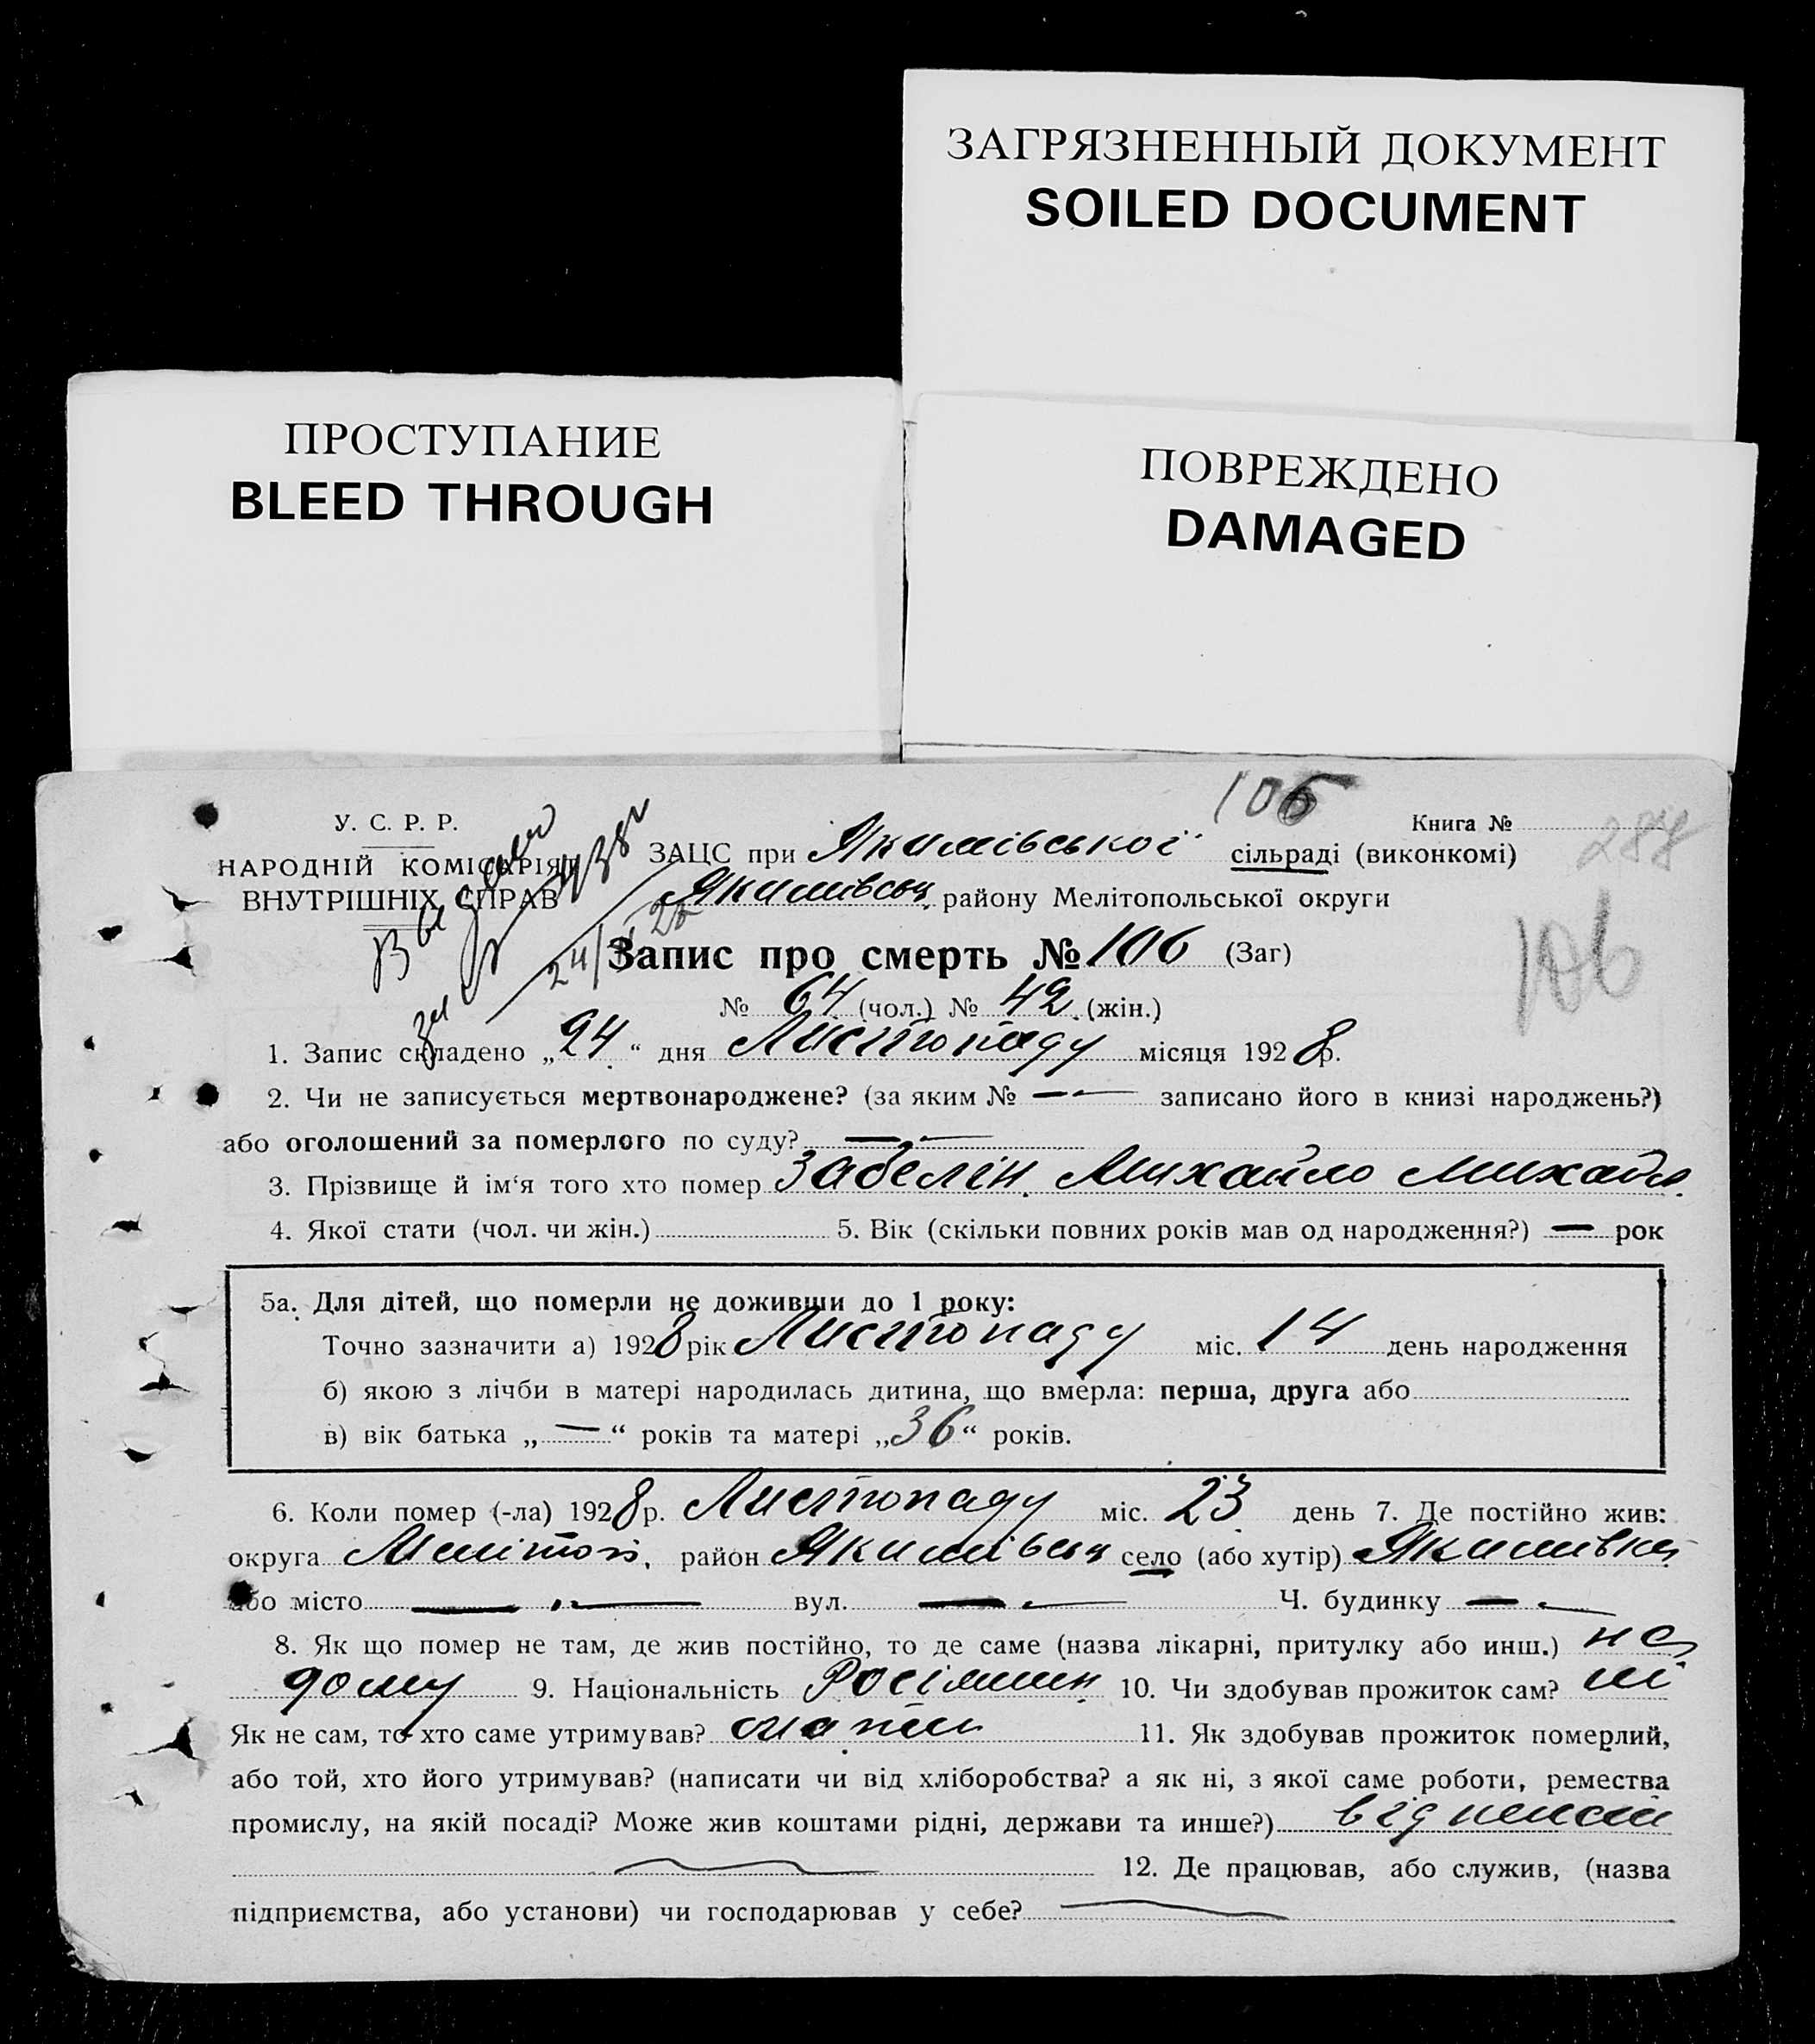 ЗАГРЯЗНЕННЫЙ ДОКУМЕНТ
SOILED DOCUMENT
ПРОСТУПАНИЕ
BLEED THROUGH
ПОВРЕЖДЕНО
DAMAGED
106
Книга №
287
У. С. Р. Р.
НАРОДНІЙ КОМІСАРІЯТ
ВНУТРІШНІХ СПРАВ
ЗАЦС при Якимівської сільраді (виконкомі)
Якимівськ. району Мелітопольської округи
Запис про смерть № 106 (Заг)
106
№ 64 (чол.) № 42 (жін.)
1. Запис складено „24“ дня Листопаду місяця 1928 р.
2. Чи не записується мертвонароджене? (за яким № — записано його в книзі народжень?)
або оголошений за померлого по суду? —
3. Прізвище й ім‘я того хто помер Забелін Михайло Михайл.
4. Якої стати (чол. чи жін.) 5. Вік (скільки повних років мав од народження?) — рок
5а. Для дітей, що померли не доживши до 1 року:
Точно зазначити а) 1928 рік Листопаду міс. 14 день народження
б) якою з лічби в матері народилась дитина, що вмерла: перша, друга або
в) вік батька „—“ років та матері „36“ років.
6. Коли помер (-ла) 1928 р. Листопаду міс. 23 день 7. Де постійно жив:
округа Мелітоп. район Якимівськ село (або хутір) Якимівка
або місто — вул. — Ч. будинку —
8. Як що помер не там, де жив постійно, то де саме (назва лікарні, притулку або инш.) на
дому 9. Національність Росіянин 10. Чи здобував прожиток сам? ні
Як не сам, то хто саме утримував? мати 11. Як здобував прожиток померлий,
або той, хто його утримував? (написати чи від хліборобства? а як ні, з якої саме роботи, ремества
промислу, на якій посаді? Може жив коштами рідні, держави та инше?) від пенсії
12. Де працював, або служив, (назва
підприємства, або установи) чи господарював у себе?